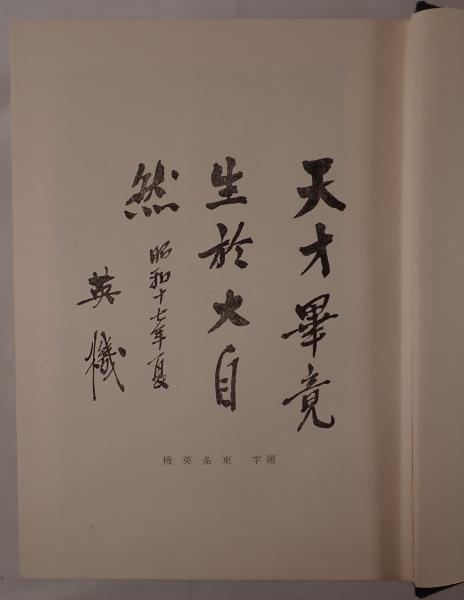 天才畢竟
生於大自
然
昭和十七年夏
英機
題字 東条英機